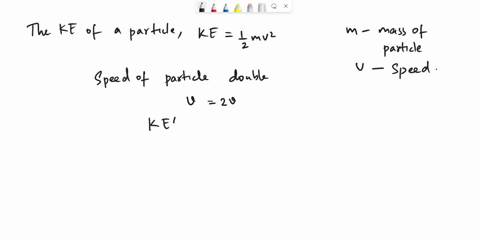 The KE of a particle, KE = 1/2 mv²
m – mass of particle
v – speed.
Speed of particle double
v = 2v
KE'